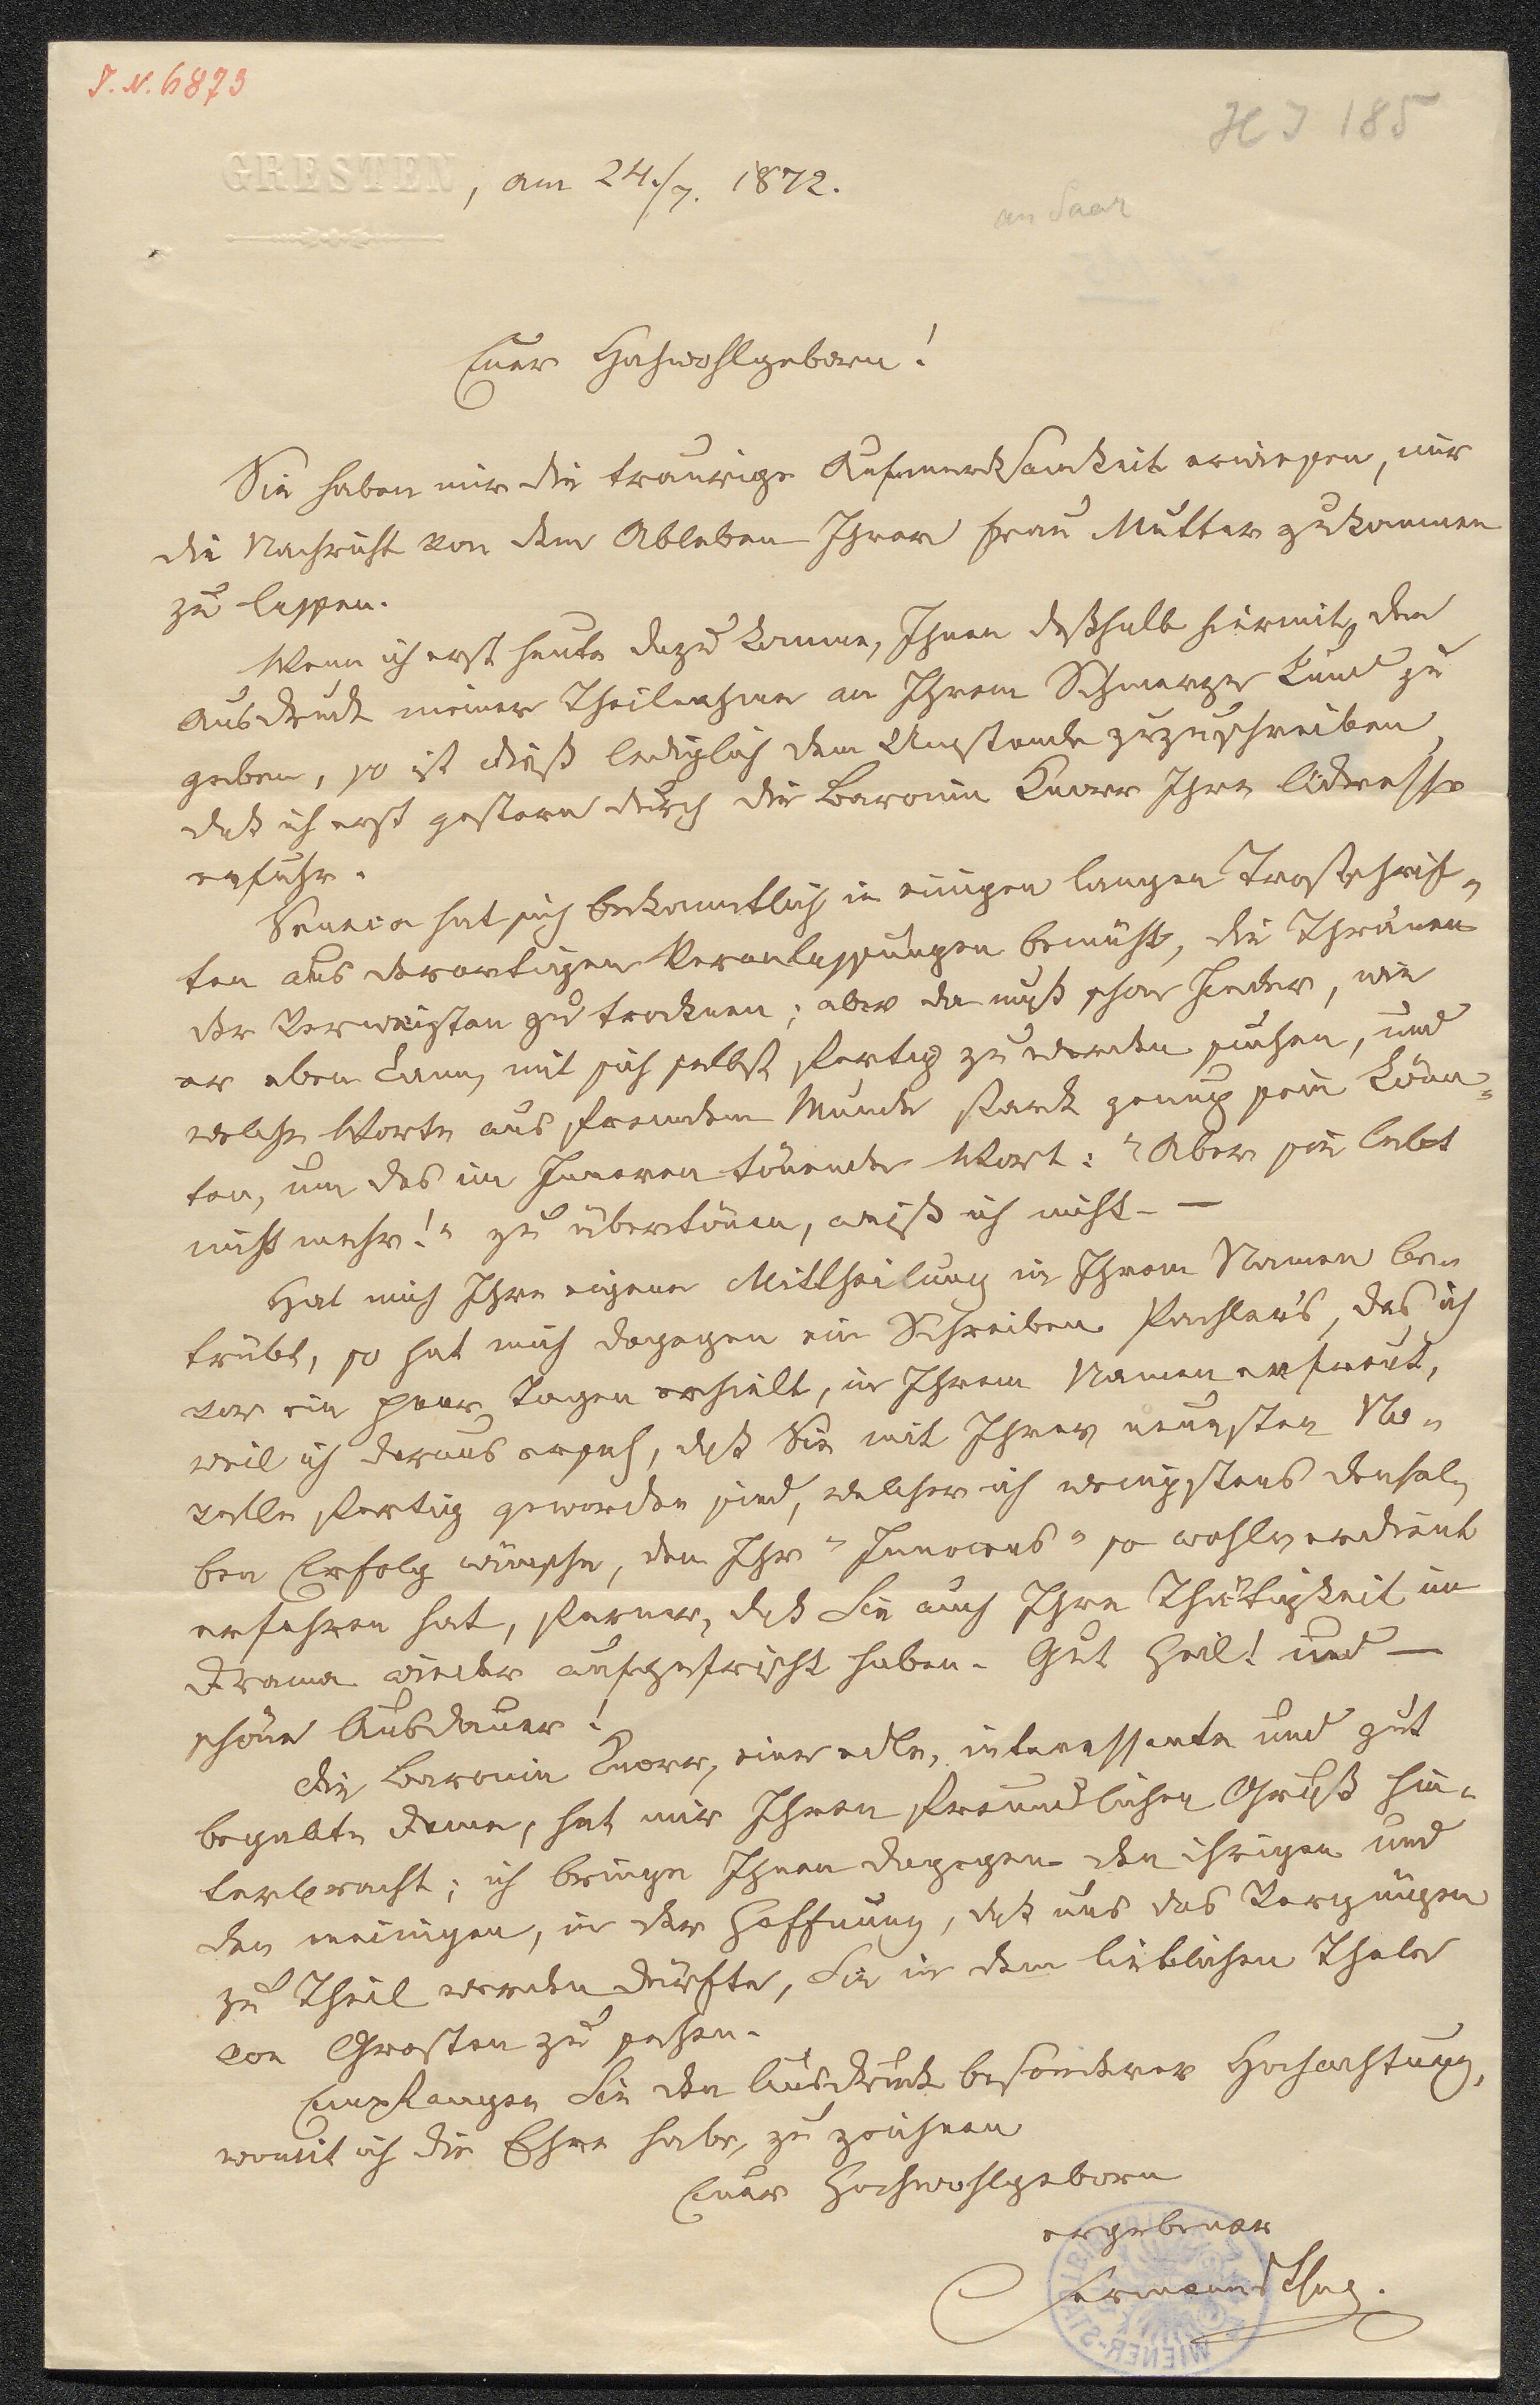 I. N. 6873
H I 185
GRESTEN, am 24./7. 1872.
an Saar
Euer Hochwohlgeborn!
Sie haben mir die traurige Aufmerksamkeit erwiesen, mir
die Nachricht von dem Ableben Ihrer Frau Mutter zukommen
zu lassen.
Wenn ich erst heute dazu komme, Ihnen deßhalb hiermit den
Ausdruck meiner Theilnahme an Ihrem Schmerze kund zu
geben, so ist dieß lediglich dem Umstande zuzuschreiben,
daß ich erst gestern durch die Baronin Knorr Ihre Adresse
erfuhr.
Seneca hat sich bekanntlich in einigen langen Trostschrif-
ten aus derartigen Veranlassungen bemüht, die Thränen
der Verwaisten zu trocknen; aber da muß schon Jeder, wie
er eben kann, mit sich selbst fertig zu werden suchen, und
welche Worte aus fremdem Munde stark genug sein könn-
ten, um das im Inneren tönende Wort: "Aber sie lebt
nicht mehr!" zu übertönen, weiß ich nicht. —
Hat mich Ihre eigene Mittheilung in Ihrem Namen be-
trübt, so hat mich dagegen ein Schreiben Pachler's, das ich
vor ein paar Tagen erhielt, in Ihrem Namen erfreut,
weil ich daraus ersah, daß Sie mit Ihrer neuesten No-
velle fertig geworden sind, welcher ich wenigstens densel-
ben Erfolg wünsche, den Ihr "Innocens" so wohlverdient
erfahren hat, ferner, daß Sie auch Ihre Thätigkeit im
Drama wieder aufgefrischt haben. Gut Heil! und —
schöne Ausdauer!
Die Baronin Knorr, eine edle, interessante und gut
begabte Dame, hat mir Ihren freundlichen Gruß hin-
terbracht; ich bringe Ihnen dagegen den ihrigen und
den meinigen, in der Hoffnung, daß uns das Vergnügen
zu Theil werden dürfte, Sie in dem lieblichen Thale
von Gresten zu sehen.
Empfangen Sie den Ausdruck besonderer Hochachtung,
womit ich die Ehre habe, zu zeichnen
Euer Hochwohlgeborn
ergebener
Hermann
WIENER